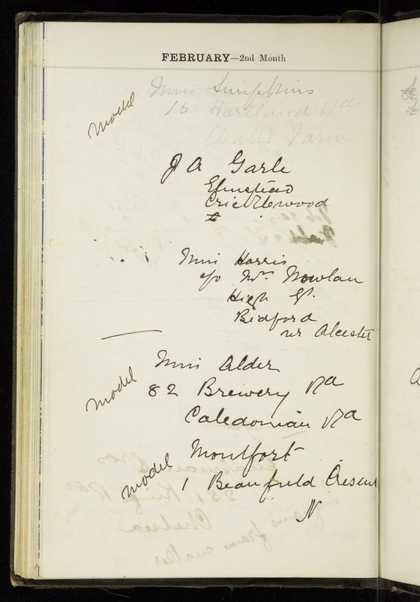 FEBRUARY—2nd Month
Model
Miss Simpkins
16 Harewood
J A Garle
Elmstead
Cricklewood
Miss Harris
c/o Mrs Nowlan
High St.
Bidford
nr Alcester
Model
Miss Alder
82 Brewery Rd
Caledonian Rd
Model
Montfort
1 Beaufield Crescent
N